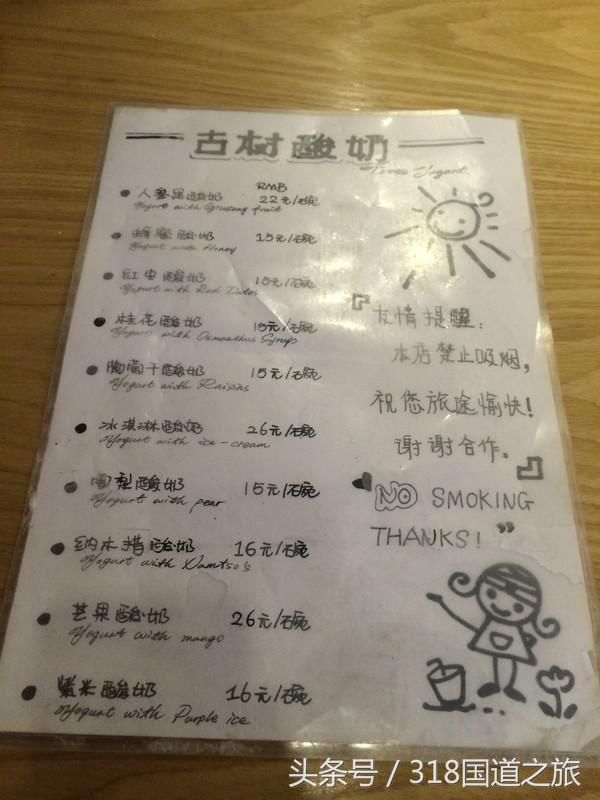 古树酸奶
Trees Yogurt
RMB
人参果酸奶 22元/碗
Yogurt with Gruseng fruit
蜂蜜酸奶 15元/碗
Yogurt with Honey
红枣酸奶 15元/碗
Yogurt with Red Dates
桂花酸奶 15元/碗
Yogurt with Osmanthus Syrups
葡萄干酸奶 15元/碗
Yogurt with Raisins
冰淇淋酸奶 26元/碗
Yogurt with ice-cream
雪梨酸奶 15元/碗
Yogurt with pear
纳木措酸奶 16元/碗
Yogurt with Namtso's
芒果酸奶 26元/碗
Yogurt with mango
紫米酸奶 16元/碗
Yogurt with Purple ice
『友情提醒:
本店禁止吸烟,
祝您旅途愉快!
谢谢合作。』
“NO SMOKING
THANKS!”
头条号 / 318国道之旅